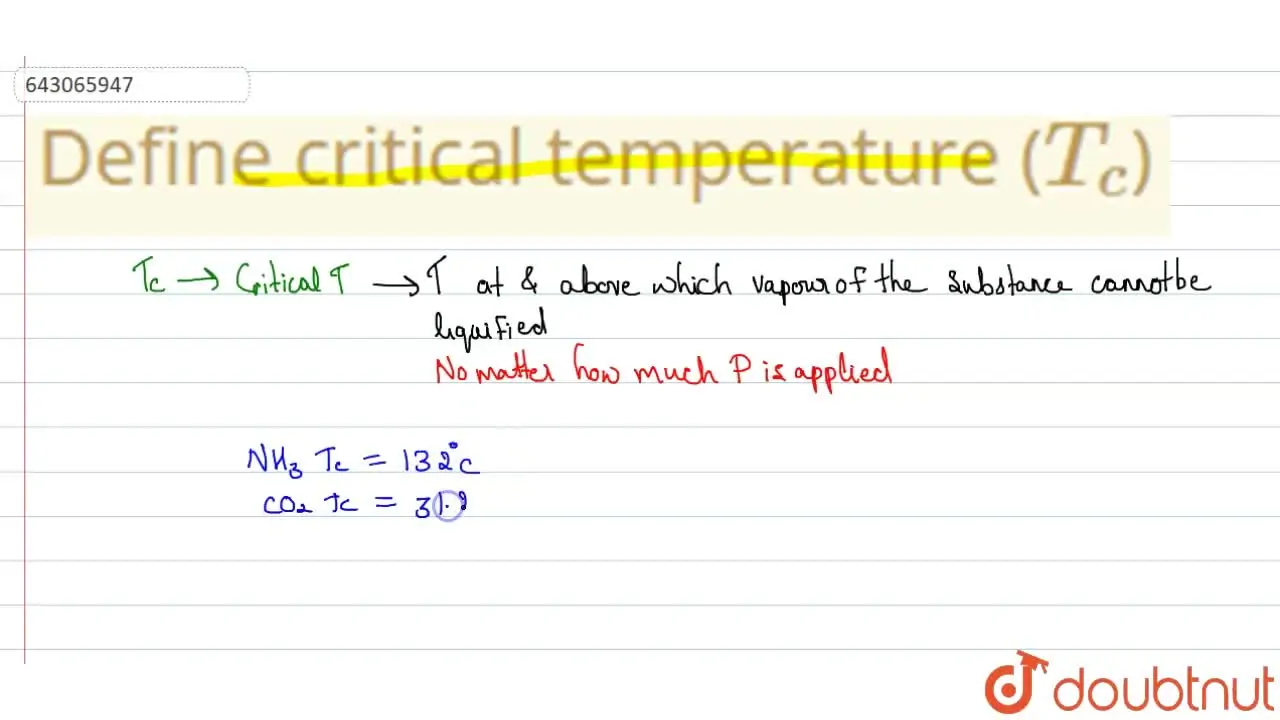 643065947
Define critical temperature (T_c)
Tc → Critical T → T at & above which vapour of the substance cannot be
liquified
No matter how much P is applied
NH3 Tc = 132°C
CO2 Tc = 31.
doubtnut